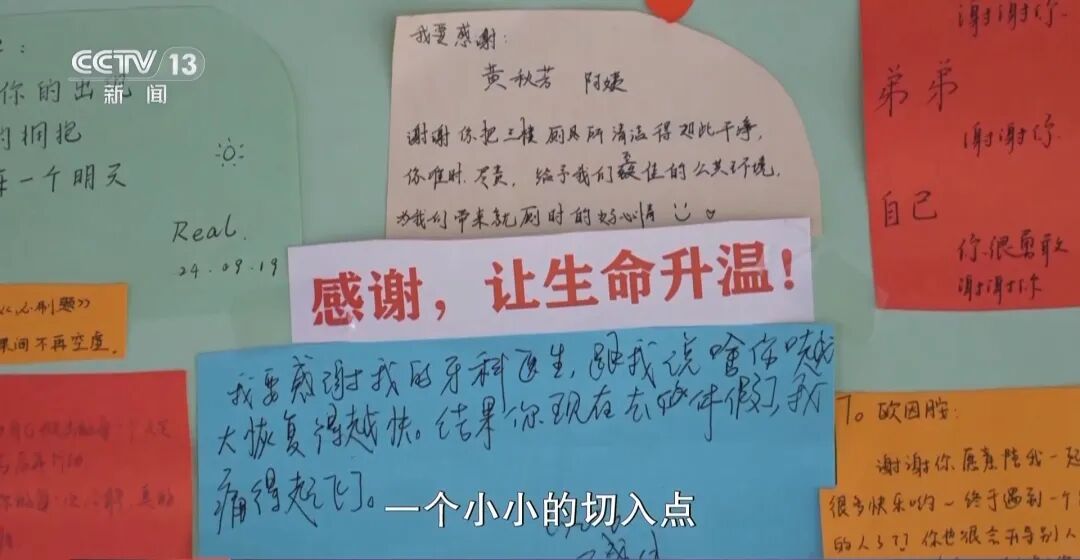 CCTV 13
新闻
你的出现
的拥抱
每一个明天
Real.
24.09.19
心刷题》
果间不再空虚。
我要感谢:
黄秋芳 阿姨
谢谢你把三楼厕所清洁得如此干净,
你准时、尽责,给予我们最佳的公共环境,
为我们带来就厕时的好心情
感谢,让生命升温!
我要感谢我的牙科医生,跟我说嘴
大恢复得越快。结果你现在去休假了,我
痛得起飞了。
谢谢你.
弟弟
谢谢你.
自己
你很勇敢
谢谢你
To 欧因腔:
谢谢你愿意陪我一起
很多快乐哟~终于遇到一个
的人了了 你也很会别人
一个小小的切入点